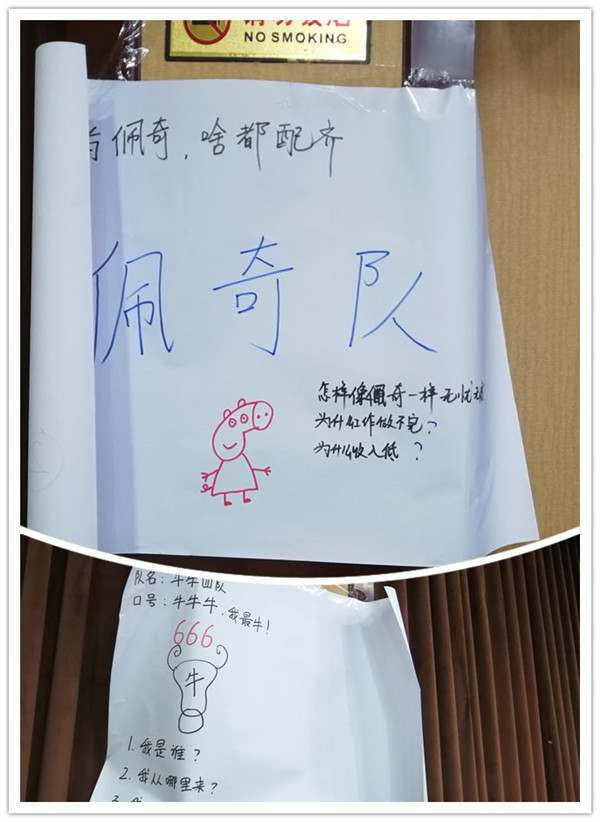 请勿吸烟
NO SMOKING
有佩奇，啥都配齐
佩奇队
怎样像佩奇一样无忧无
为什么工作做不完？
为什么收入低？
队名：牛牛团队
口号：牛牛牛，我最牛！
666
牛
1. 我是谁？
2. 我从哪里来？